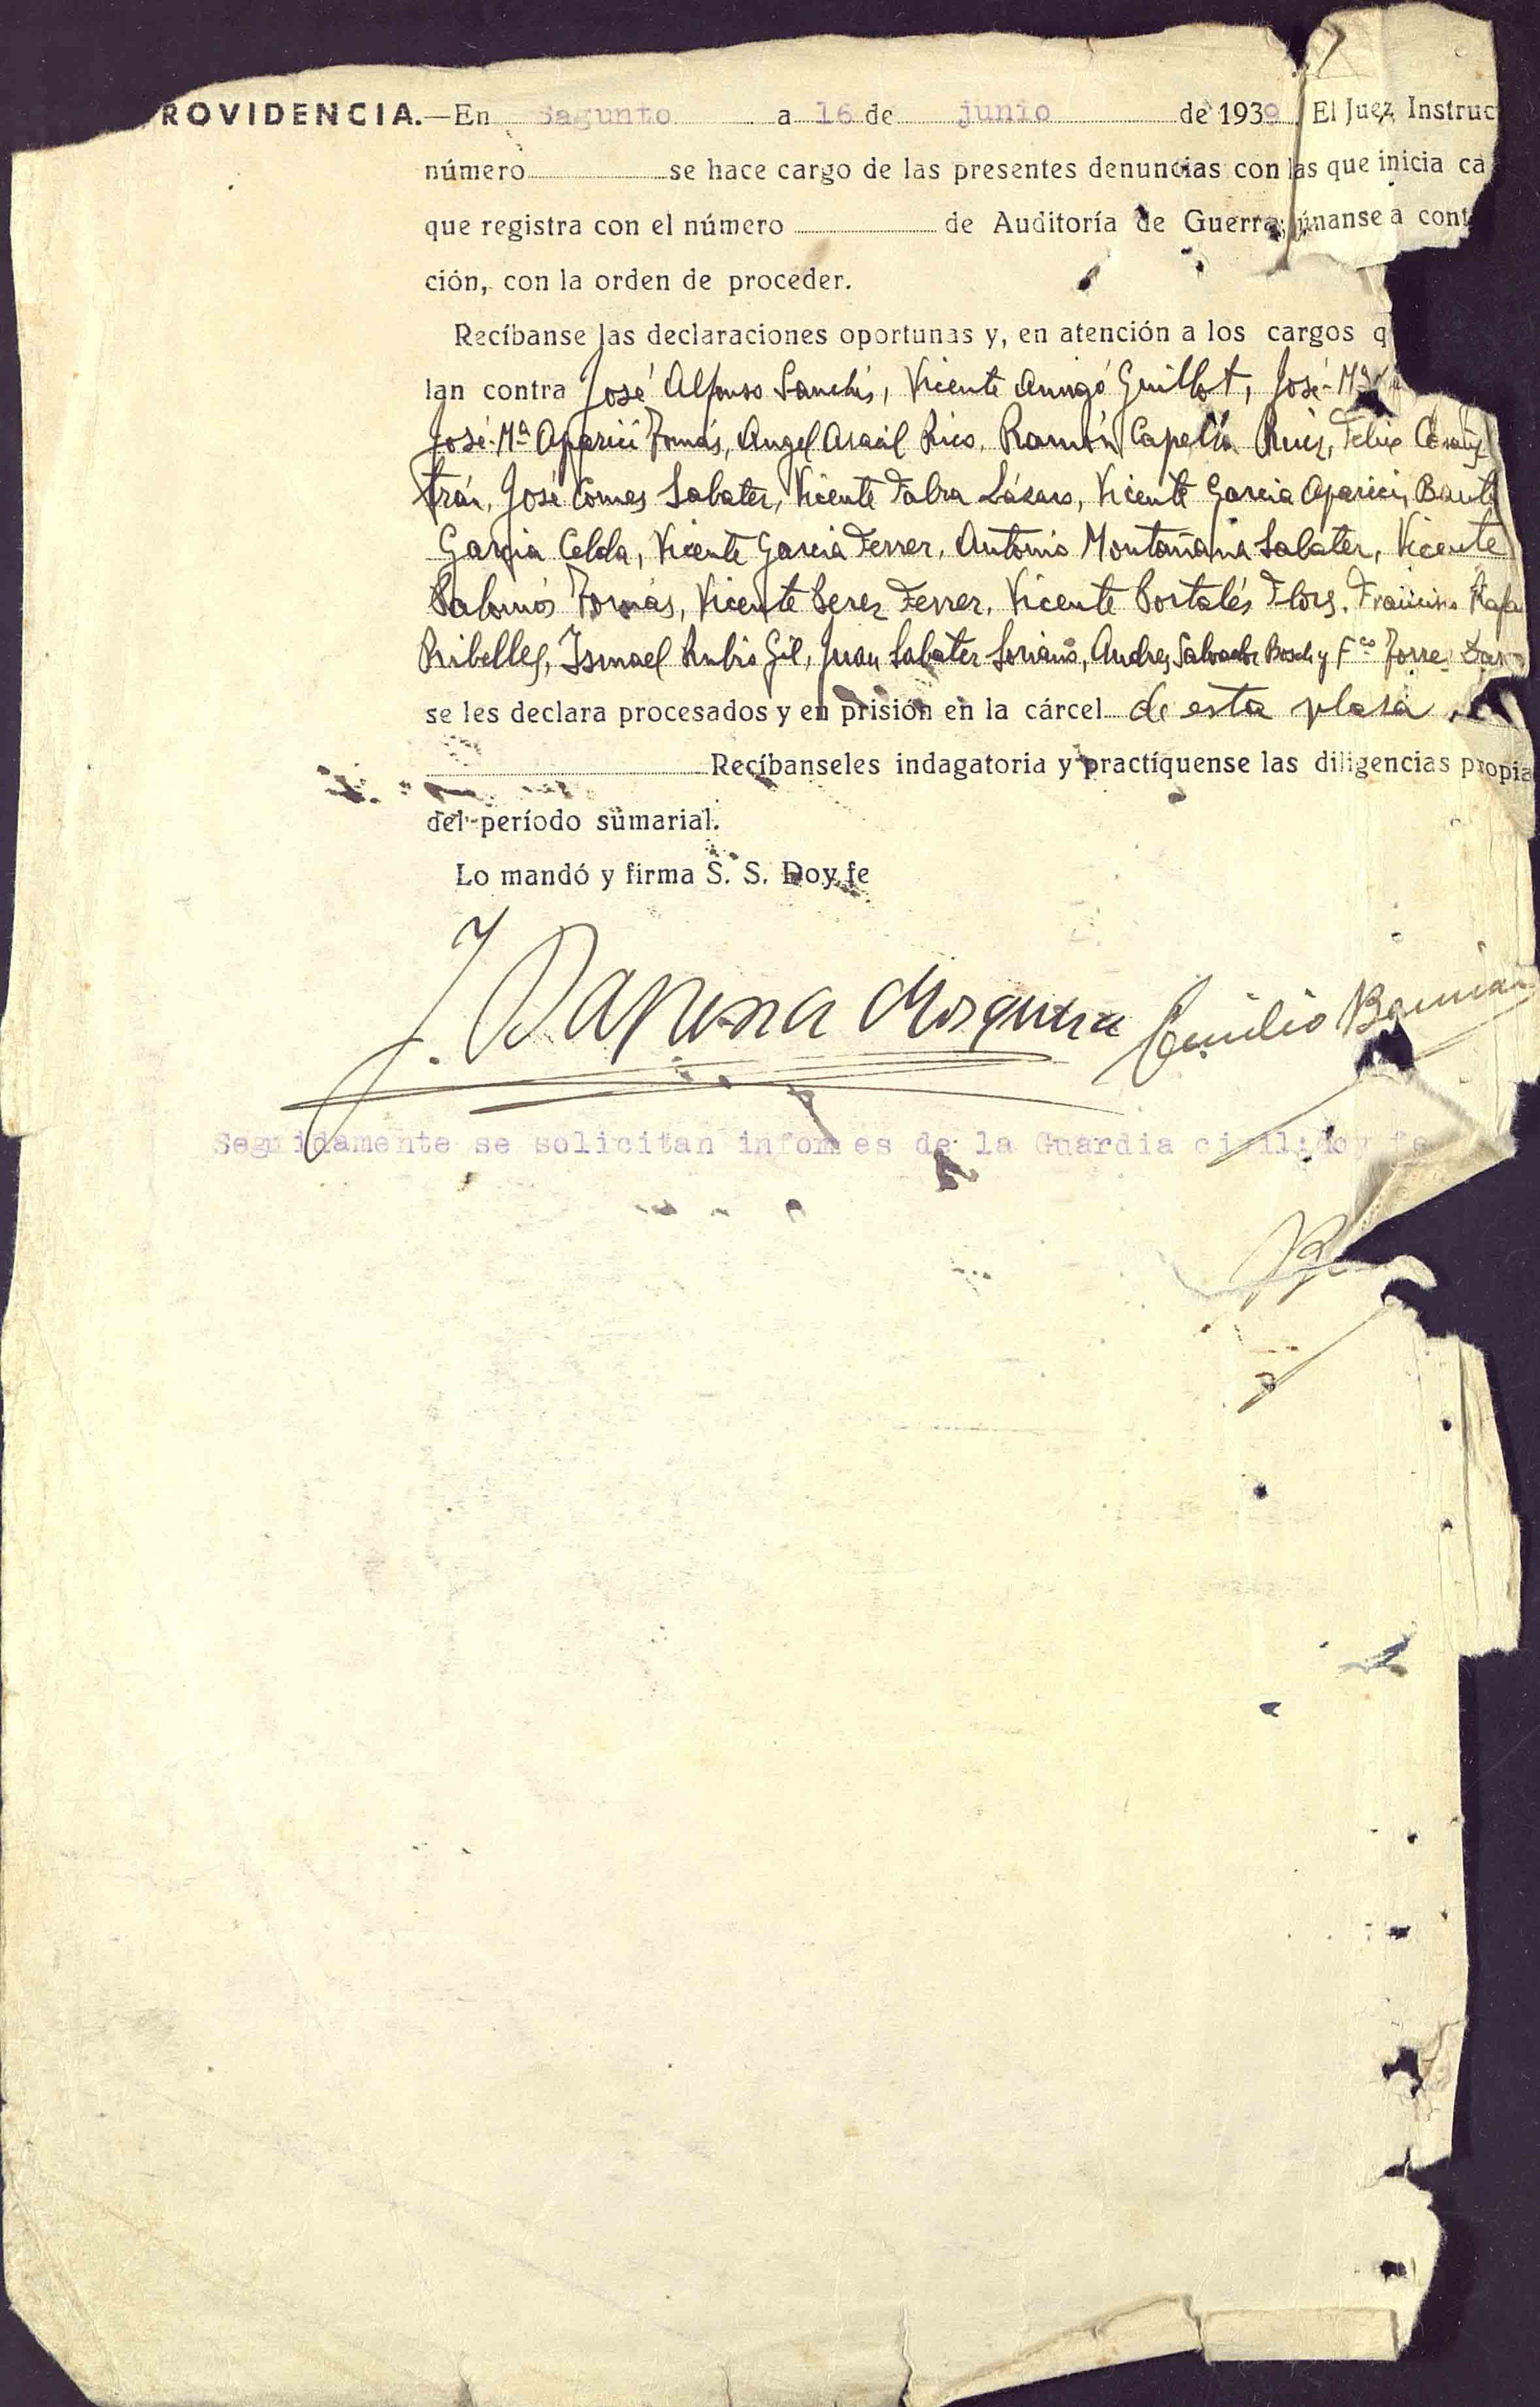 ROVIDENCIA.—En Sagunto a 16 de junio de 1939 El Juez Instruc
número se hace cargo de las presentes denuncias con las que inicia ca
que registra con el número de Auditoría de Guerra; únanse a cont
ción, con la orden de proceder.
Recíbanse las declaraciones oportunas y, en atención a los cargos q
lan contra José Alfonso Sanchis, Vicente Arrigó Guillot, José-Mª
José-Mª Aparici Tomás, Angel Aracil Rico, Ramón Capella Ruiz, Felix
trán, José Comes Sabater, Vicente Fabra Lázaro, Vicente Garcia Aparici, Bauti
Garcia Celda, Vicente Garcia Ferrer, Antonio Montañana Sabater, Vicente
Palomós Tomás, Vicente Perez Ferrer, Vicente Portalés Flors, Francisco Rafa
Ribelles, Ismael Rubio Gil, Juan Sabater Soriano, Andres Salvador Bosch y Fco Torres
se les declara procesados y en prisión en la cárcel de esta plasa
Recíbanseles indagatoria y practíquense las diligencias propia
del período sumarial.
Lo mandó y firma S. S. Doy fe
J. Dapena Mosquera Emilio
Seguidamente se solicitan infomes de la Guardia civil; doy fe